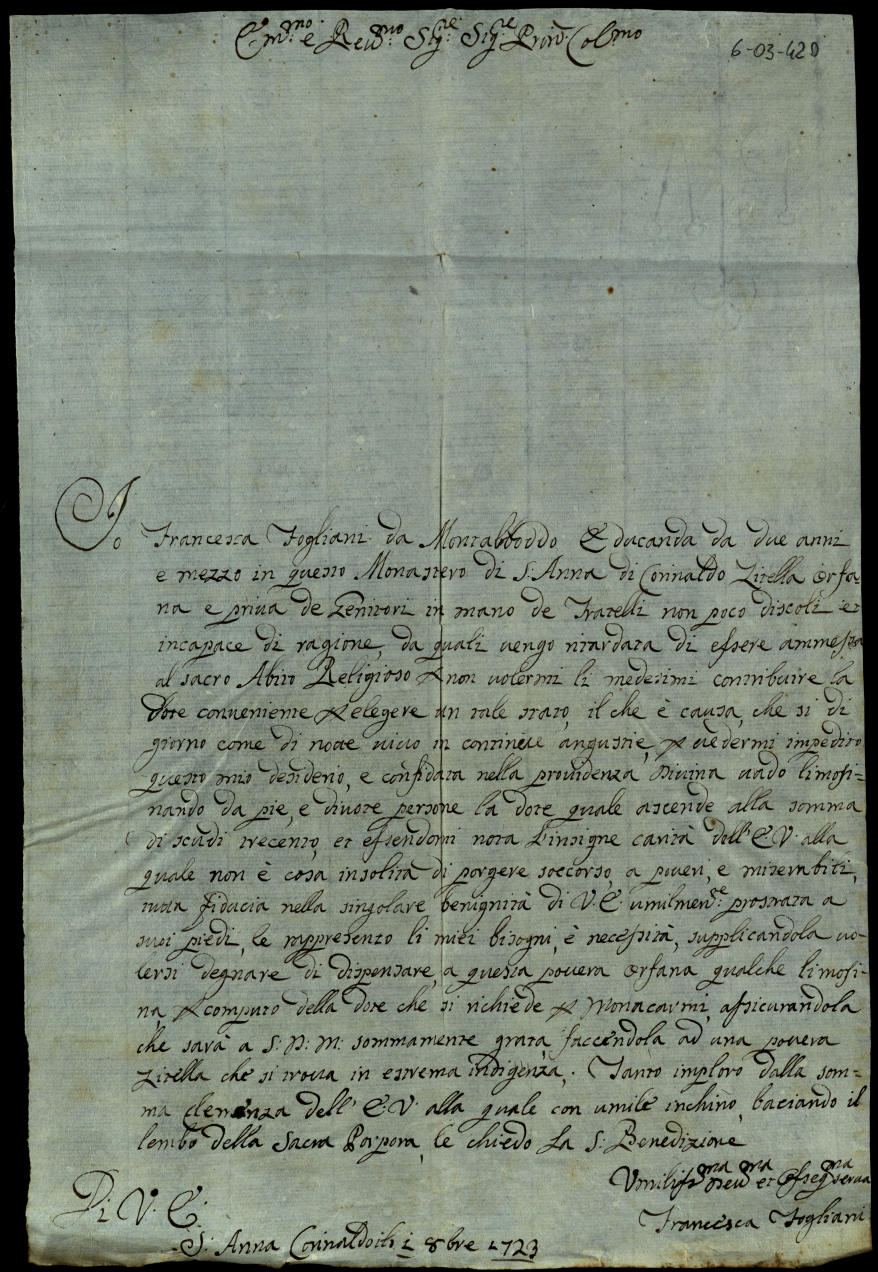 Em.mo e Reu.mo Sig.re Sig.re Prin. Col.mo
6-03-420
Io Francesca Fogliani da Montalboddo Educanda da due anni
e mezzo in questo Monastero di S. Anna di Corinaldo Zitella orfa-
na e priua de Genitori in mano de Fratelli non poco discoli et
incapace di ragione, da quali uengo ritardata di essere ammessa
al sacro Abito Religioso p non uolermi li medesimi contribuire la
Dote conueniente p elegere un tale stato, il che è causa, che si di
giorno come di notte uiuo in continue angustie, p uedermi impedito
questo mio desiderio, e confidata nella prouidenza Diuina uado limosi=
nando da pie, e diuote persone la dote quale ascende alla somma
di scudi trecento, et essendomi nota l'insigne carità dell'E.V. alla
quale non è cosa insolita di porgere soccorso, a poueri, e miserabili,
tutta fiducia nella singolare benignità di V.E. umilmen.te prostrata a
suoi piedi, le rappresento li miei bisogni, è necessità, supplicandola uo-
lersi degnare di dispensare, a questa pouera orfana qualche limosi-
na p computo della dote che si richiede p Monacarmi, assicurandola
che sarà a S. D. M. sommamente grata faccendola ad una pouera
Zitella che si troua in estrema indigenza. Tanto imploro dalla som=
ma clemenza dell' E.V. alla quale con umile inchino, baciando il
lembo della Sacra Porpora, le chiedo la S. Benedizione
Di V. E.
Umiliss.ma Deu.ma et Osseq.ma serua
S. Anna Corinaldo li 1 8bre 1723
Francesca Fogliani